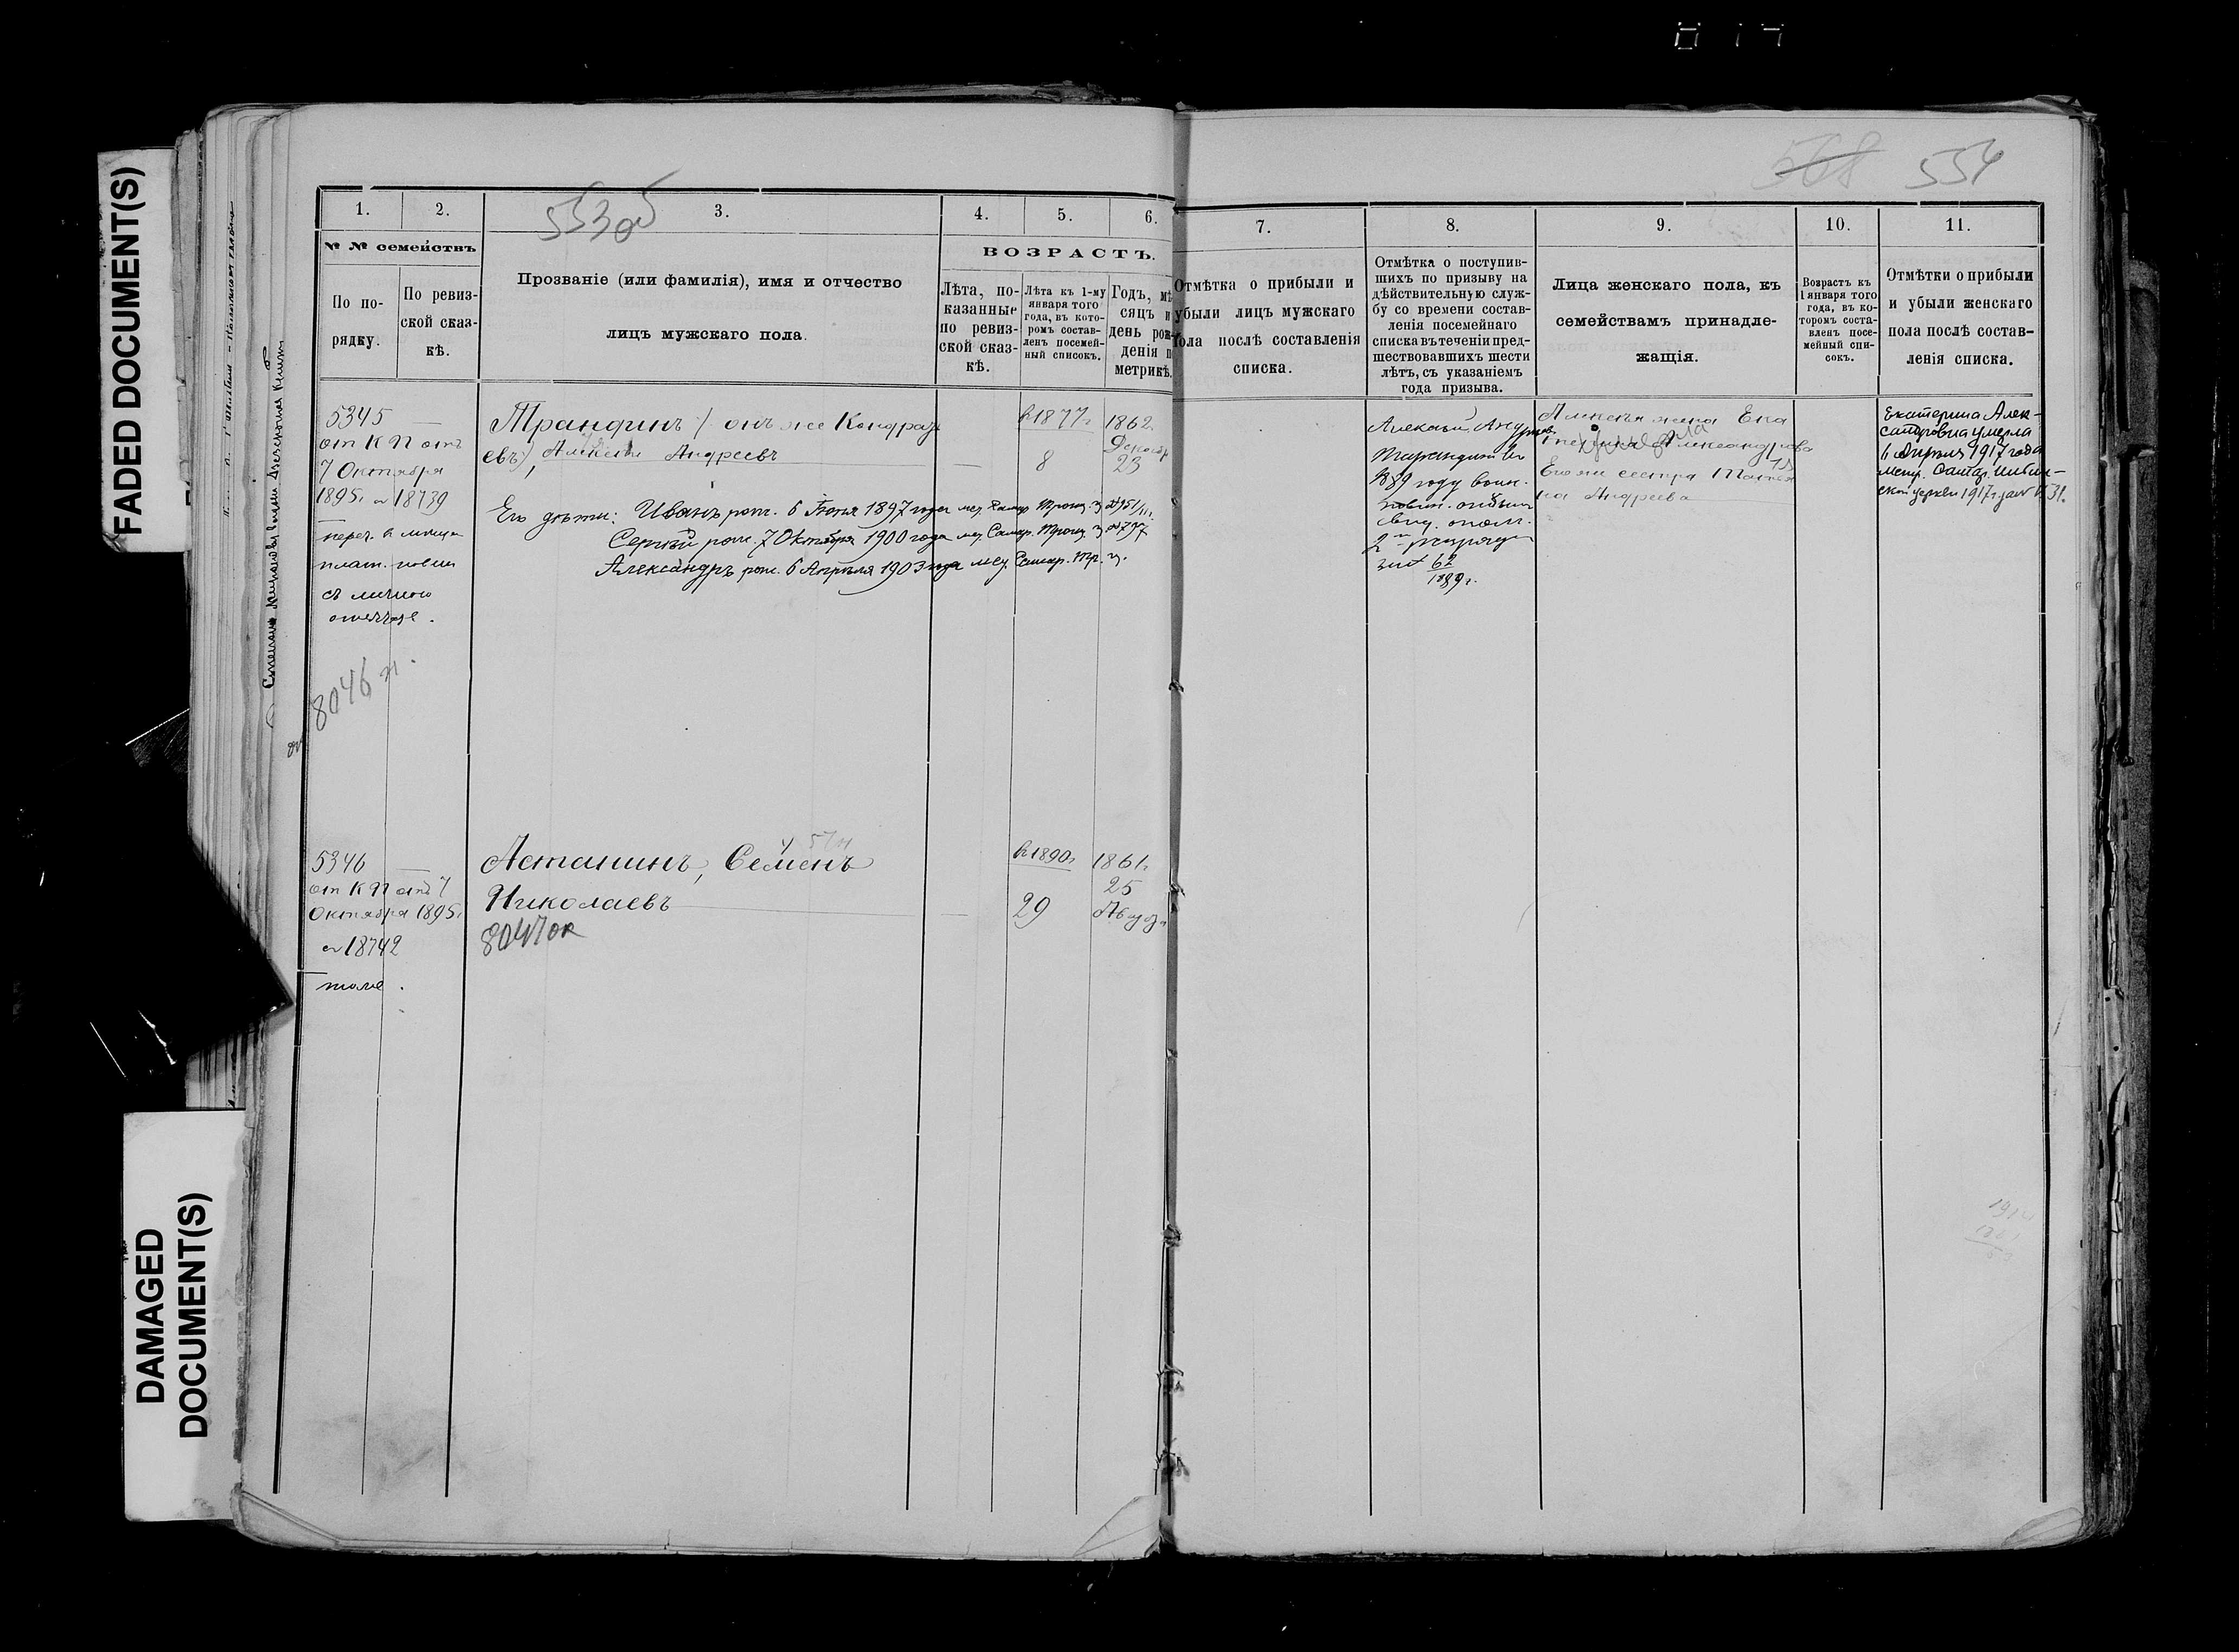 FADED DOCUMENT(S)
DAMAGED
DOCUMENT(S)
568 554
553 об
1. 2. 3. 4. 5. 6. 7. 8. 9. 10. 11.
№ № семействъ
По по-
рядку.
По ревиз-
ской сказ-
кѣ.
Прозваніе (или фамилія), имя и отчество
лицъ мужскаго пола.
ВОЗРАСТЪ.
Лѣта, по-
казанные
по ревиз-
ской сказ-
кѣ.
Лѣта къ 1-му
января того
года, въ кото-
ромъ состав-
ленъ посемей-
ный списокъ.
Годъ, мѣ-
сяцъ и
день рож-
денія п
метрикѣ.
Отмѣтка о прибыли и
убыли лицъ мужскаго
пола послѣ составленія
списка.
Отмѣтка о поступив-
шихъ по призыву на
дѣйствительную служ-
бу со времени состав-
ленія посемейнаго
списка въ теченіи пред-
шествовавшихъ шести
лѣтъ, съ указаніемъ
года призыва.
Лица женскаго пола, къ
семействамъ принадле-
жащія.
Возрастъ къ
1 января того
года, въ ко-
торомъ соста-
вленъ посе-
мейный спи-
сокъ.
Отмѣтки о прибыли
и убыли женскаго
пола послѣ состав-
ленія списка.
5345
от К П отъ
7 Октября
1895г № 18739
8046 н.
Трандинъ (онъ же Кондрать
евъ) Алексѣй Андреевъ
в 1877г
8
1862
Декабр
23
Его дѣти: Иванъ рож. 6 Іюня 1897 года
Сергѣй рож. 7 Октября 1900 года
Александръ рож. 6 Апрѣля 1903 года
Алексѣй Андреевъ
1889 году воин.
2го разряда
1889г.
Алексѣя жена Ека
терина Александрова
Его же сестра Татья
на Андреева
Екатерина Алек-
сандровна умерла
6 Апрѣля 1917 года
5346
от К П отъ 7
Октября 1895г
№ 18742
тоже.
Астанинъ, Семенъ
Николаевъ
8047 ок
в 1890г
29
1861г
25
Август